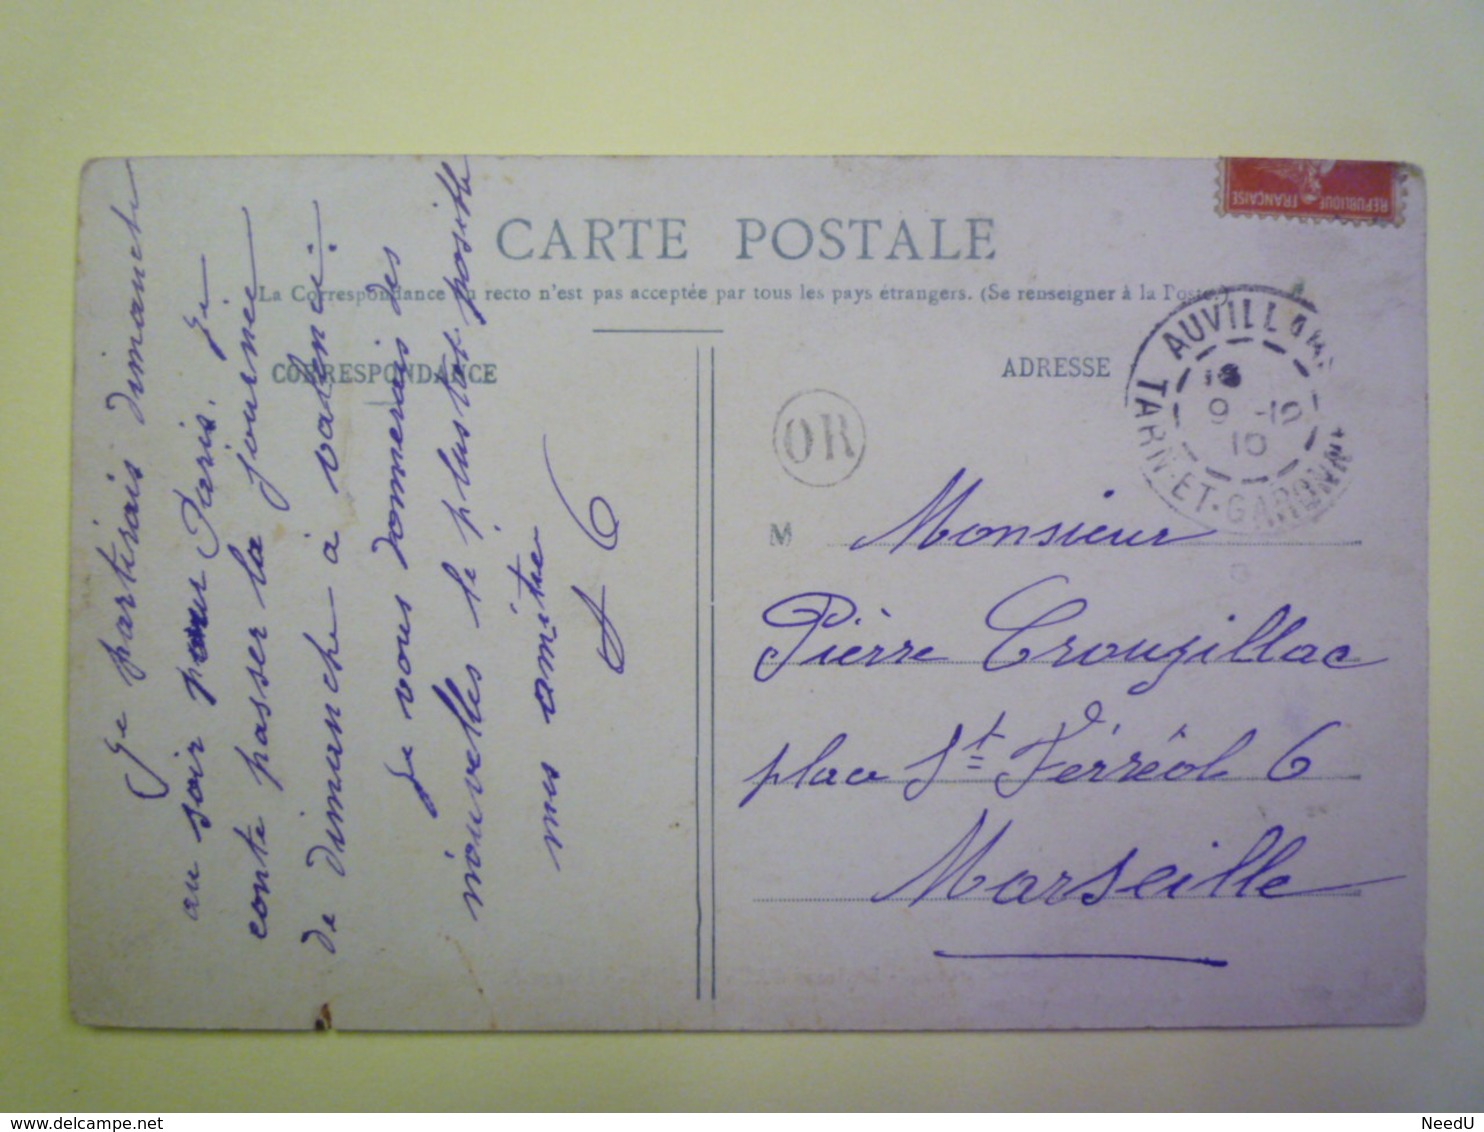 CARTE POSTALE
La Correspondance au recto n'est pas acceptée par tous les pays étrangers. (Se renseigner à la Poste.)
CORRESPONDANCE
ADRESSE
REPUBLIQUE FRANÇAISE
AUVILLAR
TARN-ET-GARONNE
9 -10
10
OR
Je partirais dimanche
au soir pour Paris. Je
conte passer la journée
de dimanche à valence.
Je vous donnerais des
nouvelles le plustot posible
mes amitie
M
Monsieur
Pièrre Crouzillac
place St Férréol 6
Marseille
www.delcampe.net
NeedU